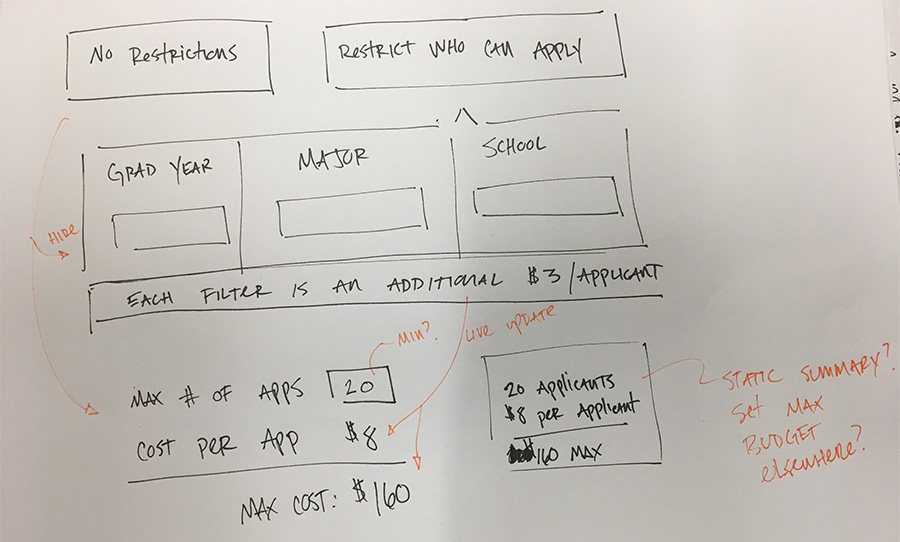 No Restrictions
RESTRICT WHO CAN APPLY
GRAD YEAR
MAJOR
SCHOOL
HIDE
EACH FILTER IS AN ADDITIONAL $3/APPLICANT
MIN?
LIVE UPDATE
MAX # OF APPS 20
COST PER APP $8
MAX COST: $160
20 Applicants
$8 per Applicant
160 MAX
STATIC SUMMARY?
Set MAX
BUDGET
elsewhere?